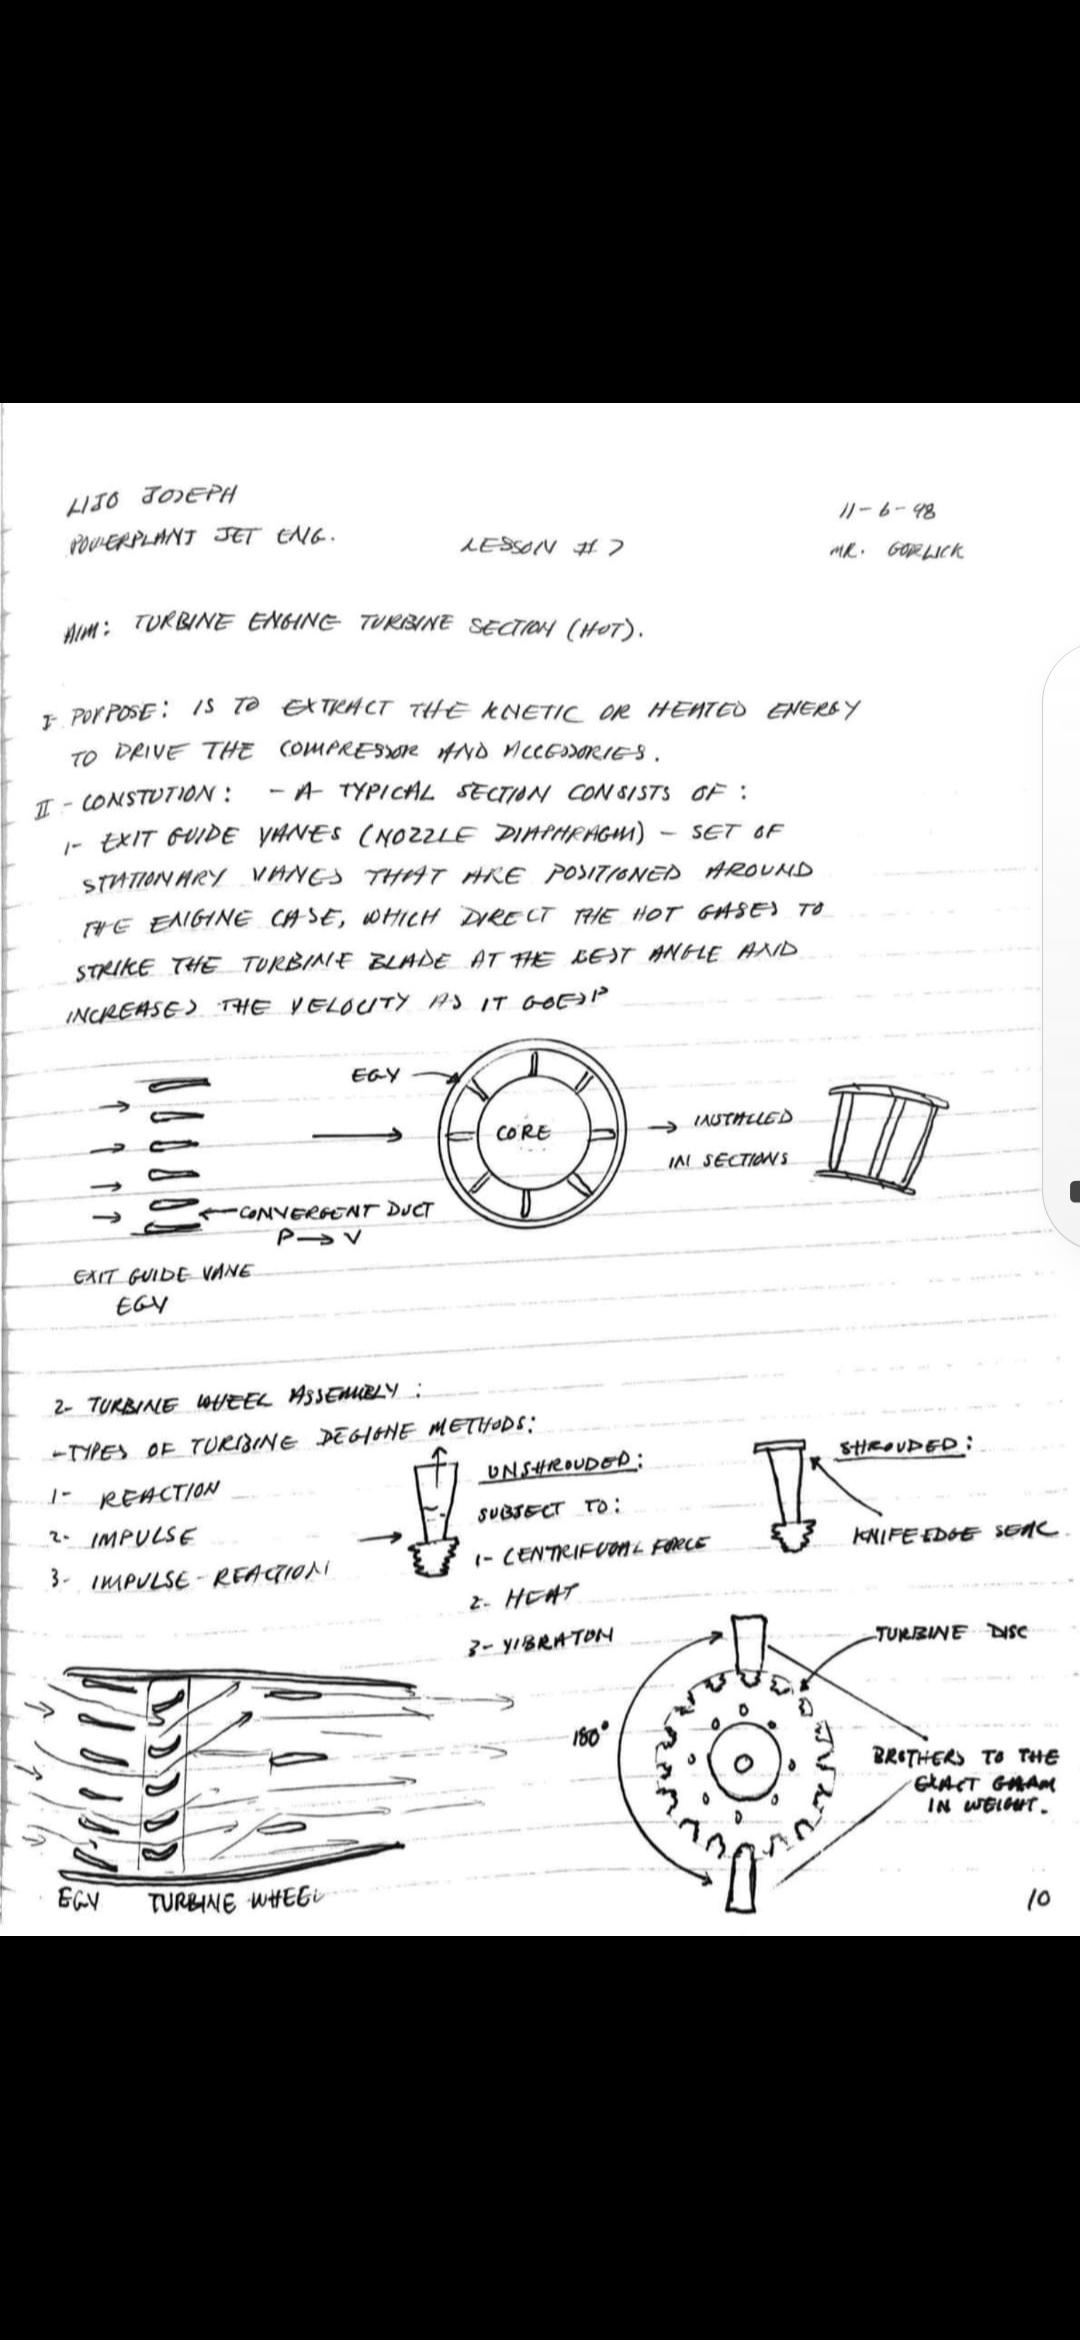 LIJO JOSEPH
11-6-98
POWERPLANT JET ENG.
LESSON # 7
MR. GORLICK
AIM: TURBINE ENGINE TURBINE SECTION (HOT).
I- PURPOSE: IS TO EXTRACT THE KNETIC OR HEATED ENERGY
TO DRIVE THE COMPRESSOR AND ACCESSORIES.
II - CONSTUTION: - A TYPICAL SECTION CONSISTS OF:
1- EXIT GUIDE VANES (NOZZLE DIAPHRAGM) - SET OF
STATIONARY VANES THAT ARE POSITIONED AROUND
THE ENGINE CASE, WHICH DIRECT THE HOT GASES TO
STRIKE THE TURBINE BLADE AT THE BEST ANGLE AND
INCREASES THE VELOCITY AS IT GOES
EGV
CORE
→ INSTALLED
IN SECTIONS
CONVERGENT DUCT
P → V
EXIT GUIDE VANE
EGV
2- TURBINE WHEEL ASSEMBLY:
-TYPES OF TURBINE DEGIGNE METHODS:
1- REACTION
2- IMPULSE
3- IMPULSE-REACTION
UNSHROUDED:
SUBJECT TO:
1- CENTRIFUGAL FORCE
2- HEAT
3- VIBRATON
SHROUDED:
KNIFE EDGE SEAL
TURBINE DISC
180°
BROTHERS TO THE
EXACT GRAM
IN WEIGHT.
EGV TURBINE WHEEL
10